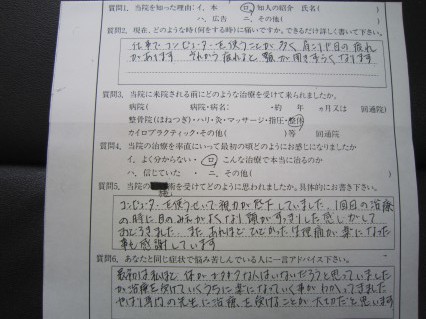 質問1. 当院を知った理由:イ. 本 ロ 知人の紹介 氏名(
ハ. 広告 ニ. その他(
質問2. 現在、どのような時(何をする時)に痛いですか。できるだけ詳しく書いて下さい。
仕事で、コンピューターを使うことが多く肩こりや目の疲れ
があります。それから疲れると、顎が開きずらくなります。
質問3. 当院に来院される前にどのような治療を受けて来られましたか。
病院( 病院・病名: ・約 年 ヶ月又は 回通院)
整骨院(はねつぎ)・ハリ・灸・マッサージ・指圧・整体
カイロプラクティック・その他( )等 回通院
質問4. 当院の治療を率直にいって最初の頃どのようにお感じになりましたか
イ. よく分からない・ ロ こんな治療で本当に治るのか
ハ. 信じていた ・ ニ. その他(
質問5. 当院の 術を受けてどのように思われましたか。具体的にお書き下さい。
コンピューターを使うといって視力が低下していました。1回目の治療
の時に目のみえがよくなり頭がすっきりした感じがして
おどろきました。また、あれほどひどかった生理痛が楽になった
事も感謝しています
質問6. あなたと同じ症状で悩み苦しんでいる人に一言アドバイス下さい。
最初は私ほど 体が な人はいないだろうと思っていました
が治療を受けていくうちに楽になっていく事がわかってきました
やはり専門の先生に治療を受けることが大切だと思います